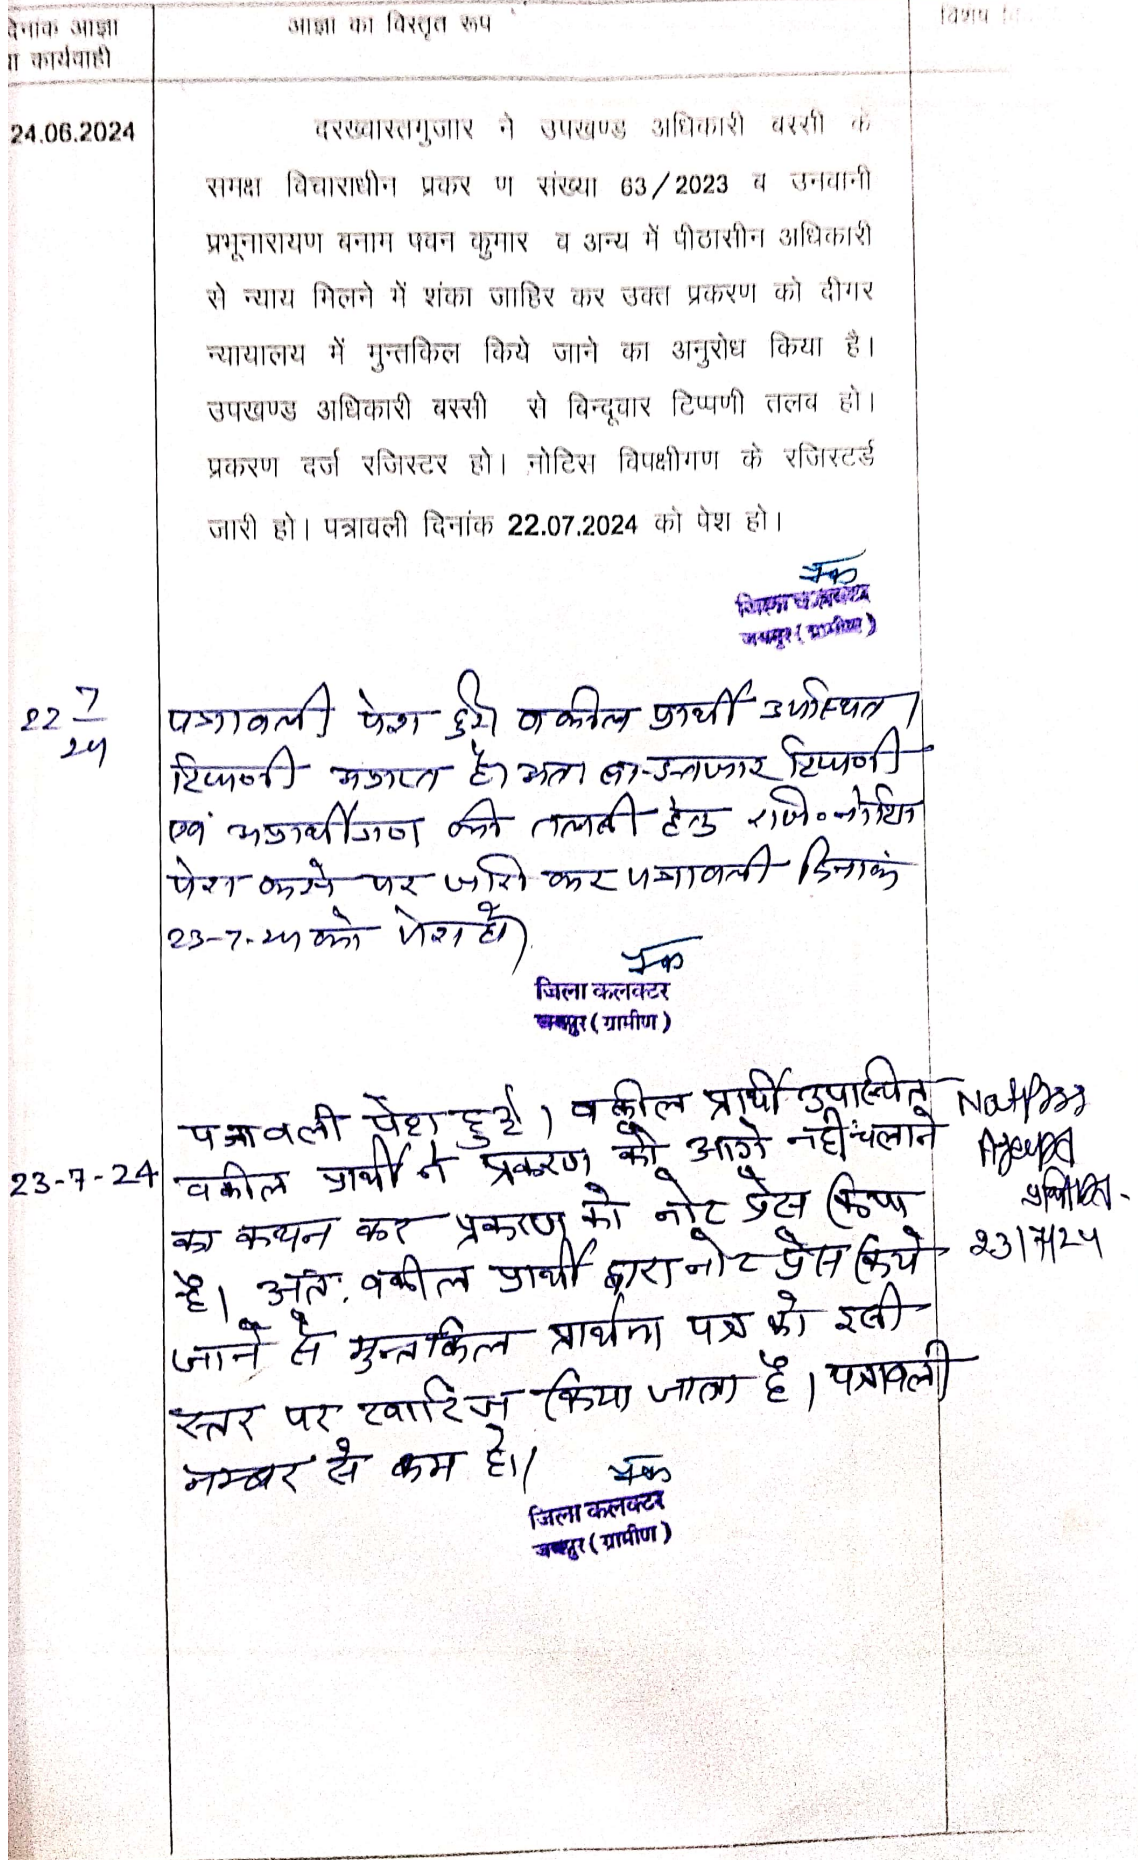 दिनांक आज्ञा
या कार्यवाही
आज्ञा का विस्तृत रूप
विशेष
24.06.2024
दरख्वास्तगुजार ने उपखण्ड अधिकारी बस्सी के
समक्ष विचाराधीन प्रकर ण संख्या 63/2023 व उनवानी
प्रभूनारायण बनाम पवन कुमार व अन्य में पीठासीन अधिकारी
से न्याय मिलने में शंका जाहिर कर उक्त प्रकरण को दीगर
न्यायालय में मुन्तकिल किये जाने का अनुरोध किया है।
उपखण्ड अधिकारी बस्सी से बिन्दूवार टिप्पणी तलब हो।
प्रकरण दर्ज रजिस्टर हो। नोटिस विपक्षीगण के रजिस्टर्ड
जारी हो। पत्रावली दिनांक 22.07.2024 को पेश हो।
जिला कलक्टर
जयपुर (ग्रामीण)
22 7/24
पत्रावली पेश हुई। वकील प्रार्थी उपस्थित।
टिप्पणी अप्राप्त है। अतः बा-इन्तजार टिप्पणी
एवं अप्रार्थीगण की तलबी हेतु रजि० नोटिस
पेश करने पर जारी कर पत्रावली दिनांक
23-7-24 को पेश हो।
जिला कलक्टर
जयपुर (ग्रामीण)
23-7-24
पत्रावली पेश हुई। वकील प्रार्थी उपस्थित
वकील प्रार्थी ने प्रकरण को आगे नहीं चलाने
का कथन कर प्रकरण को नोट प्रेस किया
है। अतः वकील प्रार्थी द्वारा नोट प्रेस किये
जाने से मुन्तकिल प्रार्थना पत्र को इसी
स्तर पर खारिज किया जाता है। पत्रावली
नम्बर से कम हो।
Not Press
23/7/24
जिला कलक्टर
जयपुर (ग्रामीण)